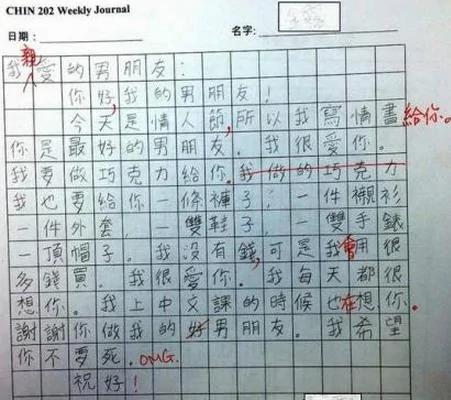 CHIN 202 Weekly Journal
日期: 名字:
我親愛的男朋友:
你好,我的男朋友!
今天是情人節,所以我寫情書給你。
你是最好的男朋友。我很愛你。
我要做巧克力給你。我做的巧克力
我也要給你一條褲子,一件襯衫
一件外套,一雙鞋子,一雙手錶
一頂帽子。我没有錢,可是我會用很
多錢買。我很愛你。我每天都很
想你。我上中文課的時候也在想你。
謝謝你做我的好男朋友。我希望
你不要死。OMG.
祝好!